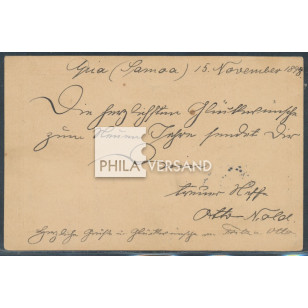 Apia (Samoa) 15. November 1898.
Die herzlichsten Glückwünsche
zum Neuen Jahre sendet Dir
PHILA VERSAND
treuer Neff
Otto
Herzliche Grüße u Glückwünsche an Otto